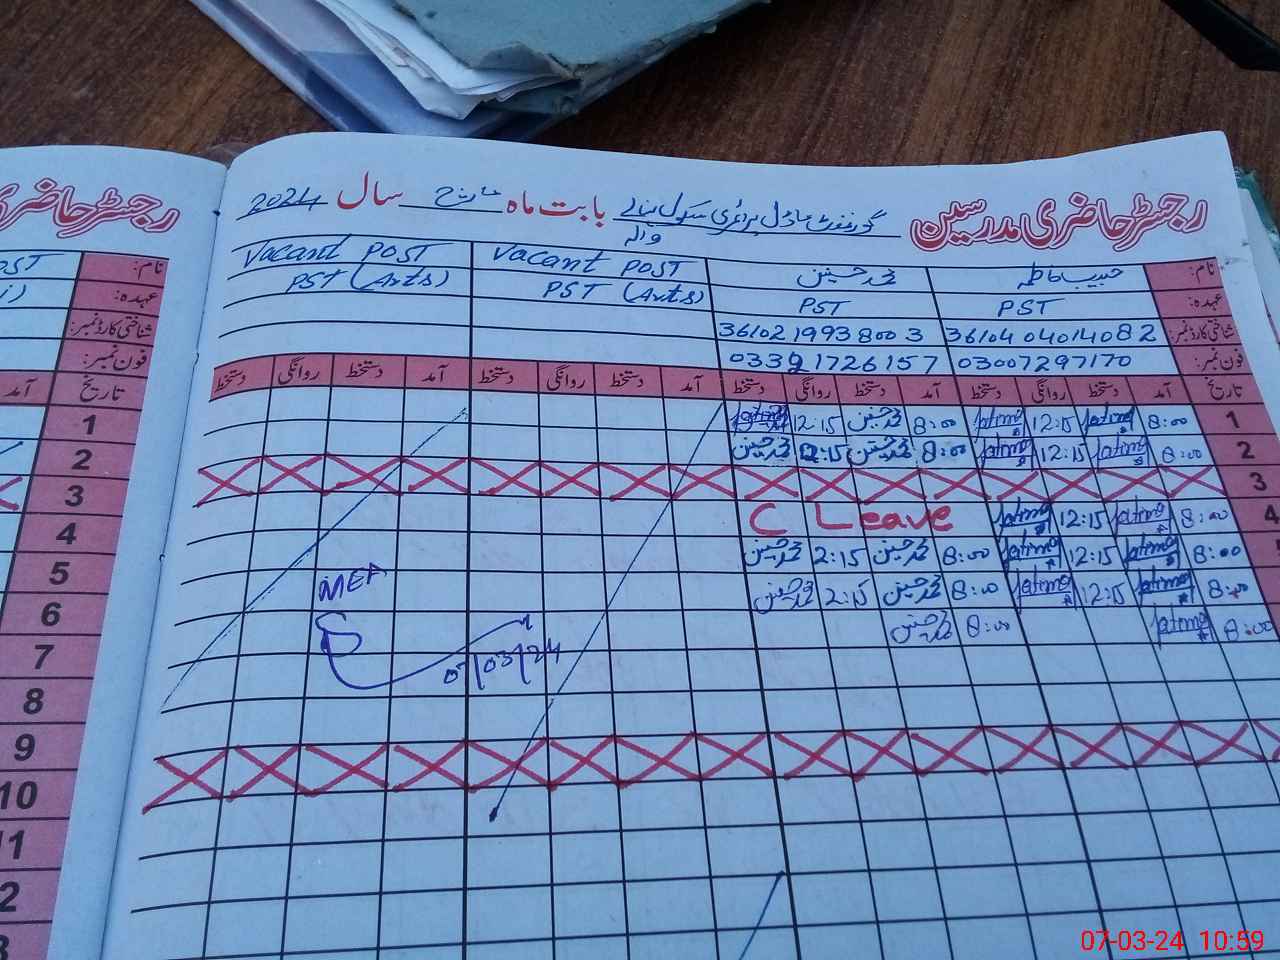 رجسٹر حاضری مدرسین گورنمنٹ ماڈل پرائمری سکول بابت ماہ مارچ سال 2024
والہ
رجسٹر حاضری
نام: محمد حسین Vacant POST Vacant POST
عہدہ: PST PST PST (Arts) PST (Arts)
شناختی کارڈ نمبر: 36104 04014082 36102 1993800 3
فون نمبر: 03007297170 03321726157
تاریخ آمد دستخط روانگی دستخط آمد دستخط روانگی دستخط آمد دستخط روانگی دستخط آمد دستخط روانگی دستخط
1 8:00 fatima 12:15 fatima 8:00 محمد حسین 12:15
2 8:00 fatima 12:15 fatima 8:00 محمد حسین 12:15 محمد حسین
3
4 8:00 fatima 12:15 fatima C Leave
8:00 fatima 12:15 fatima 8:00 محمد حسین 2:15 محمد حسین
8:00 fatima 12:15 fatima 8:00 محمد حسین 2:15 محمد حسین
8:00 fatima 8:00 محمد حسین
MEA
07/03/24
نام:
عہدہ:
شناختی کارڈ نمبر:
فون نمبر:
تاریخ آمد
1
2
3
4
5
6
7
8
9
10
11
07-03-24 10:59